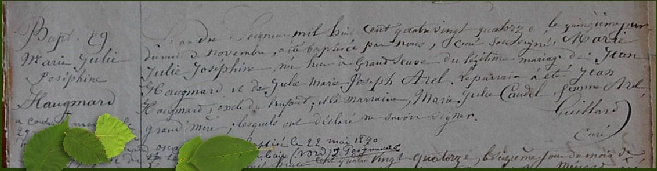 Bapt. 89
Marie Julie
Joséphine
Haugmard
L'an du Seigneur mil huit cent quatre vingt quatorze, le quinzième jour
du mois de novembre, a été baptisée par nous, Curé soussigné, Marie
Julie Joséphine, née hier à Grand' du légitime mariage de Jean
Haugmard, et de Julie Marie Joseph Arel. Le parrain a été Jean
Haugmard, oncle de l'enfant, et la marraine, Marie Julie Caudel femme Arel,
grand'mère, lesquels ont déclaré ne savoir signer.
Guillard
Curé
le 22 mai 1890
cent quatre vingt quatorze, le jour du mois de